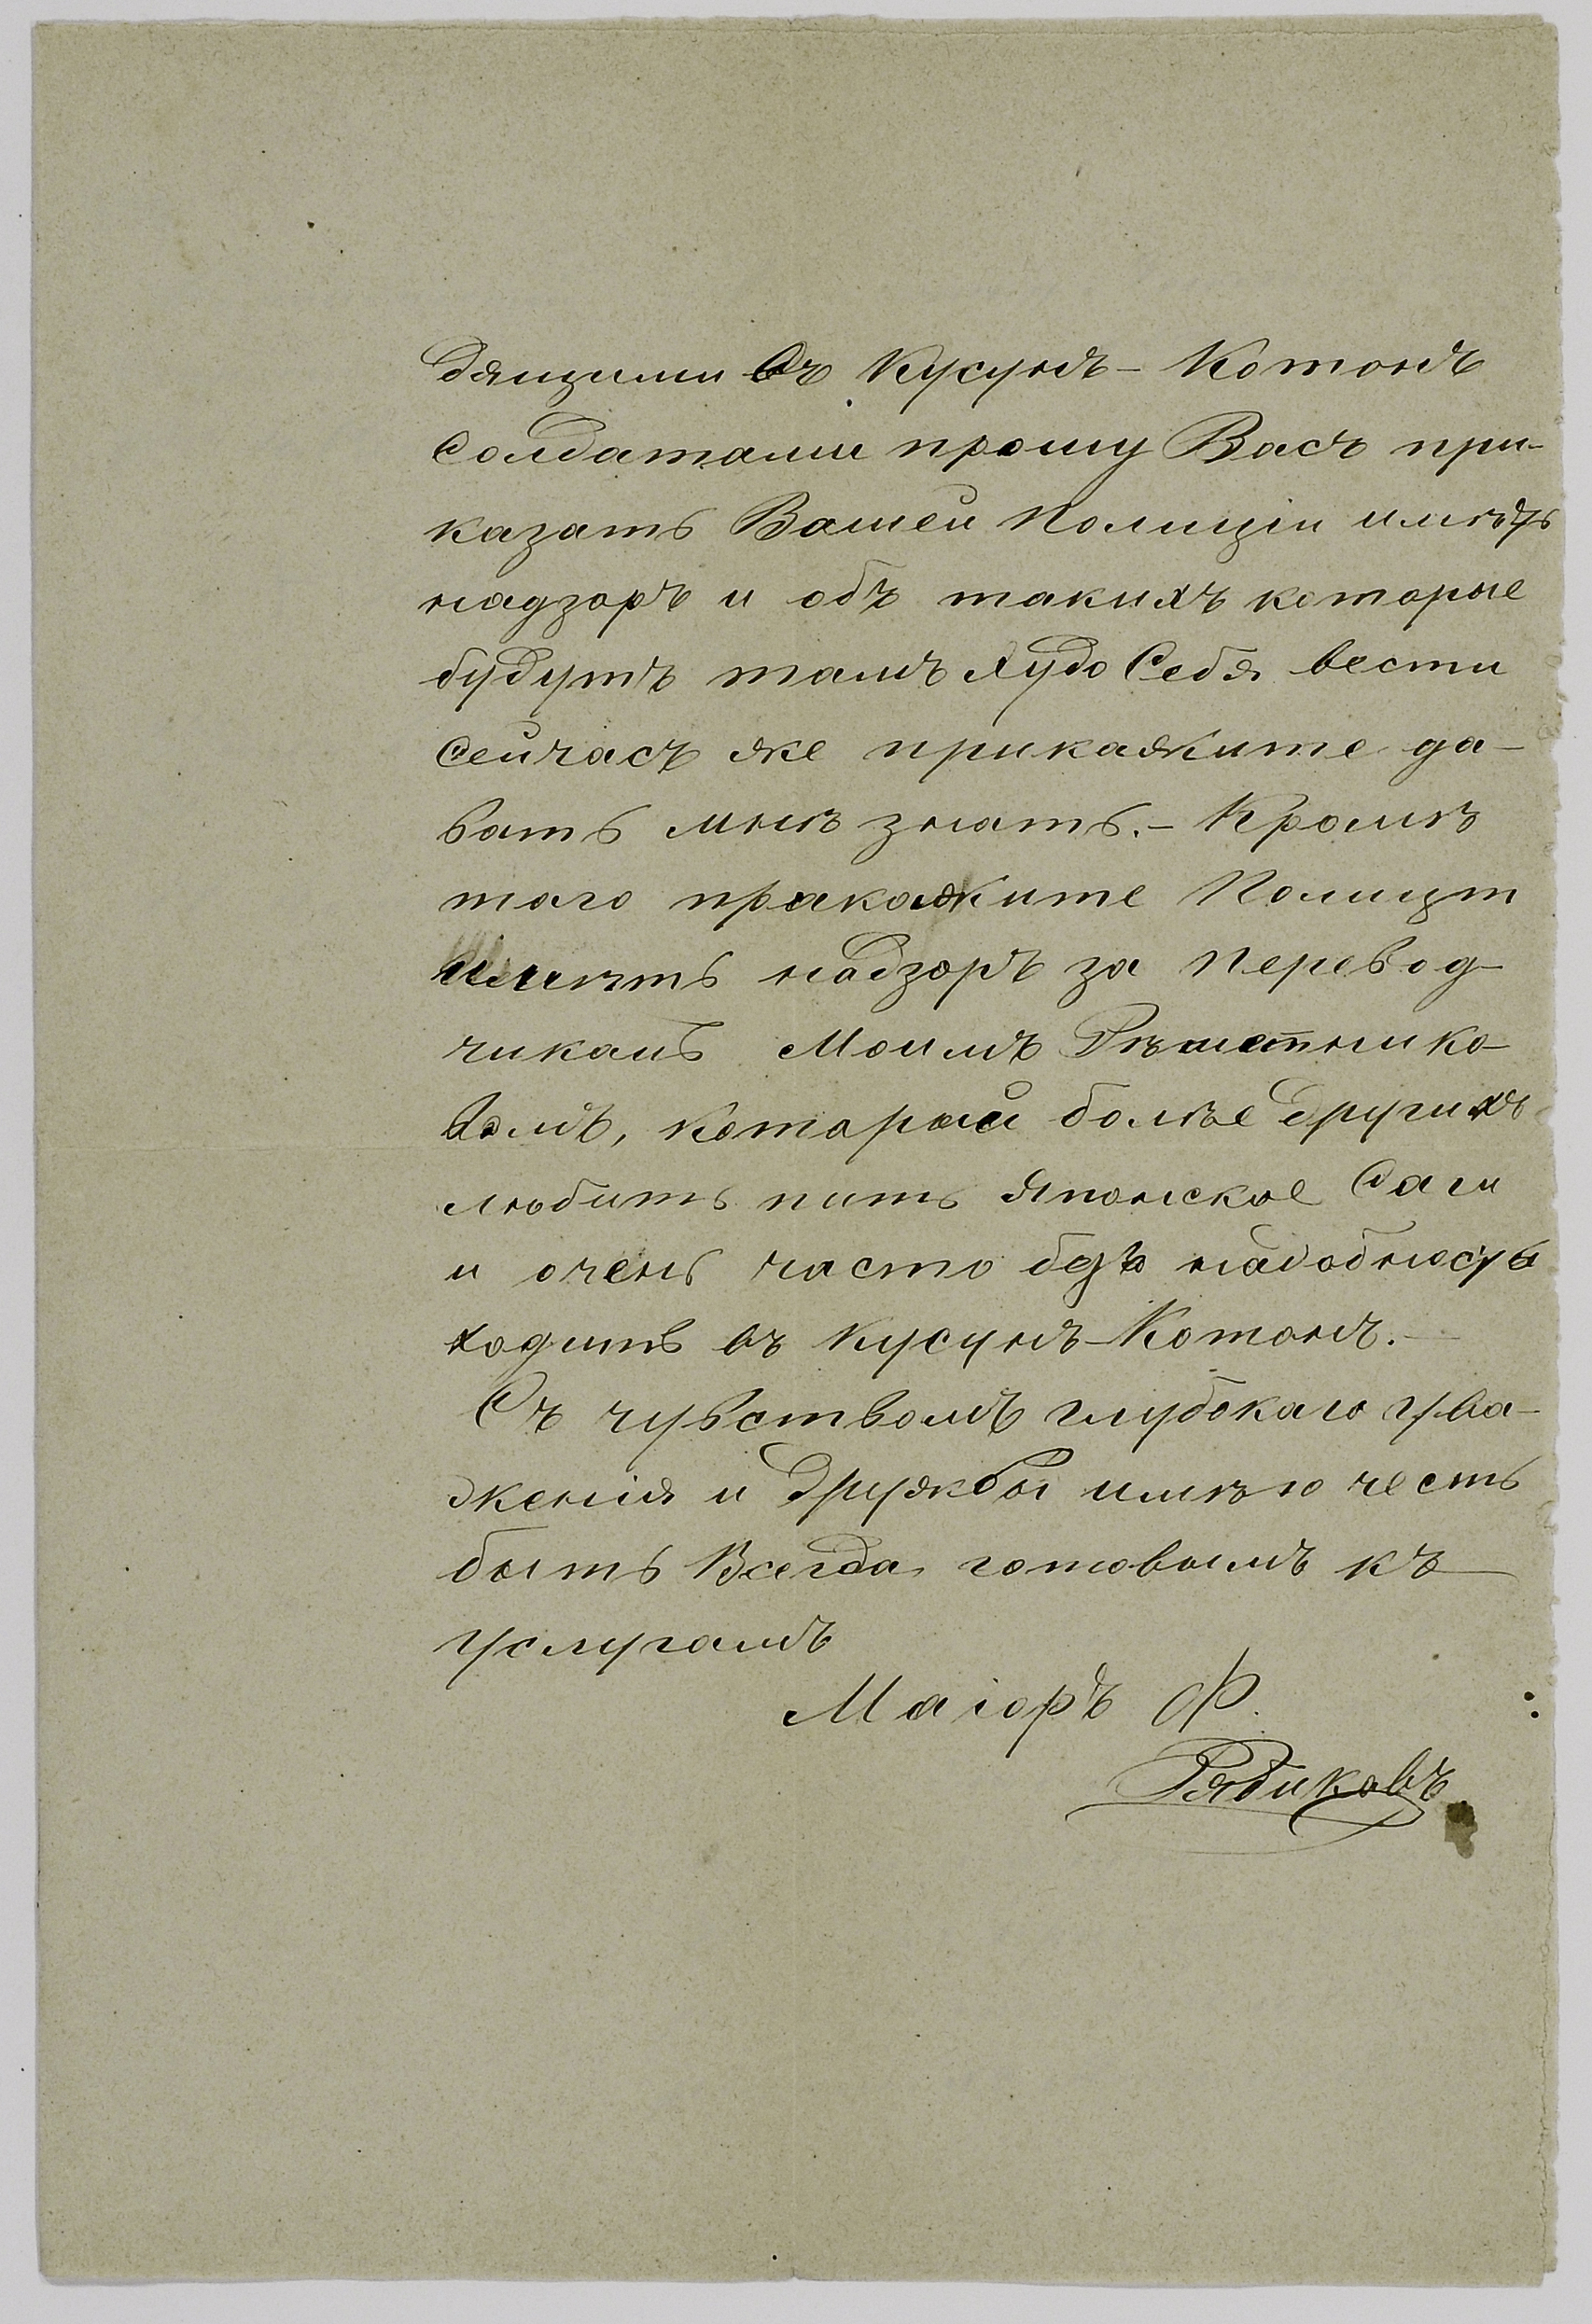 дящими въ Кусунъ-Котонъ
Солдатами прошу Васъ при-
казать Вашей Полиціи имѣть
надзоръ и объ такихъ которые
будутъ тамъ худо Себя вести
Сейчасъ же прикажите да-
вать мнѣ знать.- Кромѣ
того прикажите Полиціи
имѣть надзоръ за Перевод-
чикомъ Моимъ Рѣшетнико-
вомъ, который болѣе другихъ
любитъ пить Японское Саги
и очень часто безъ надобность
ходитъ въ Кусунъ-Котонъ.-
Съ чувствомъ глубокаго ува-
женія и дружбы имѣю честь
быть Всегда готовымъ къ
услугамъ
Маіоръ Ф.
Рябиковъ